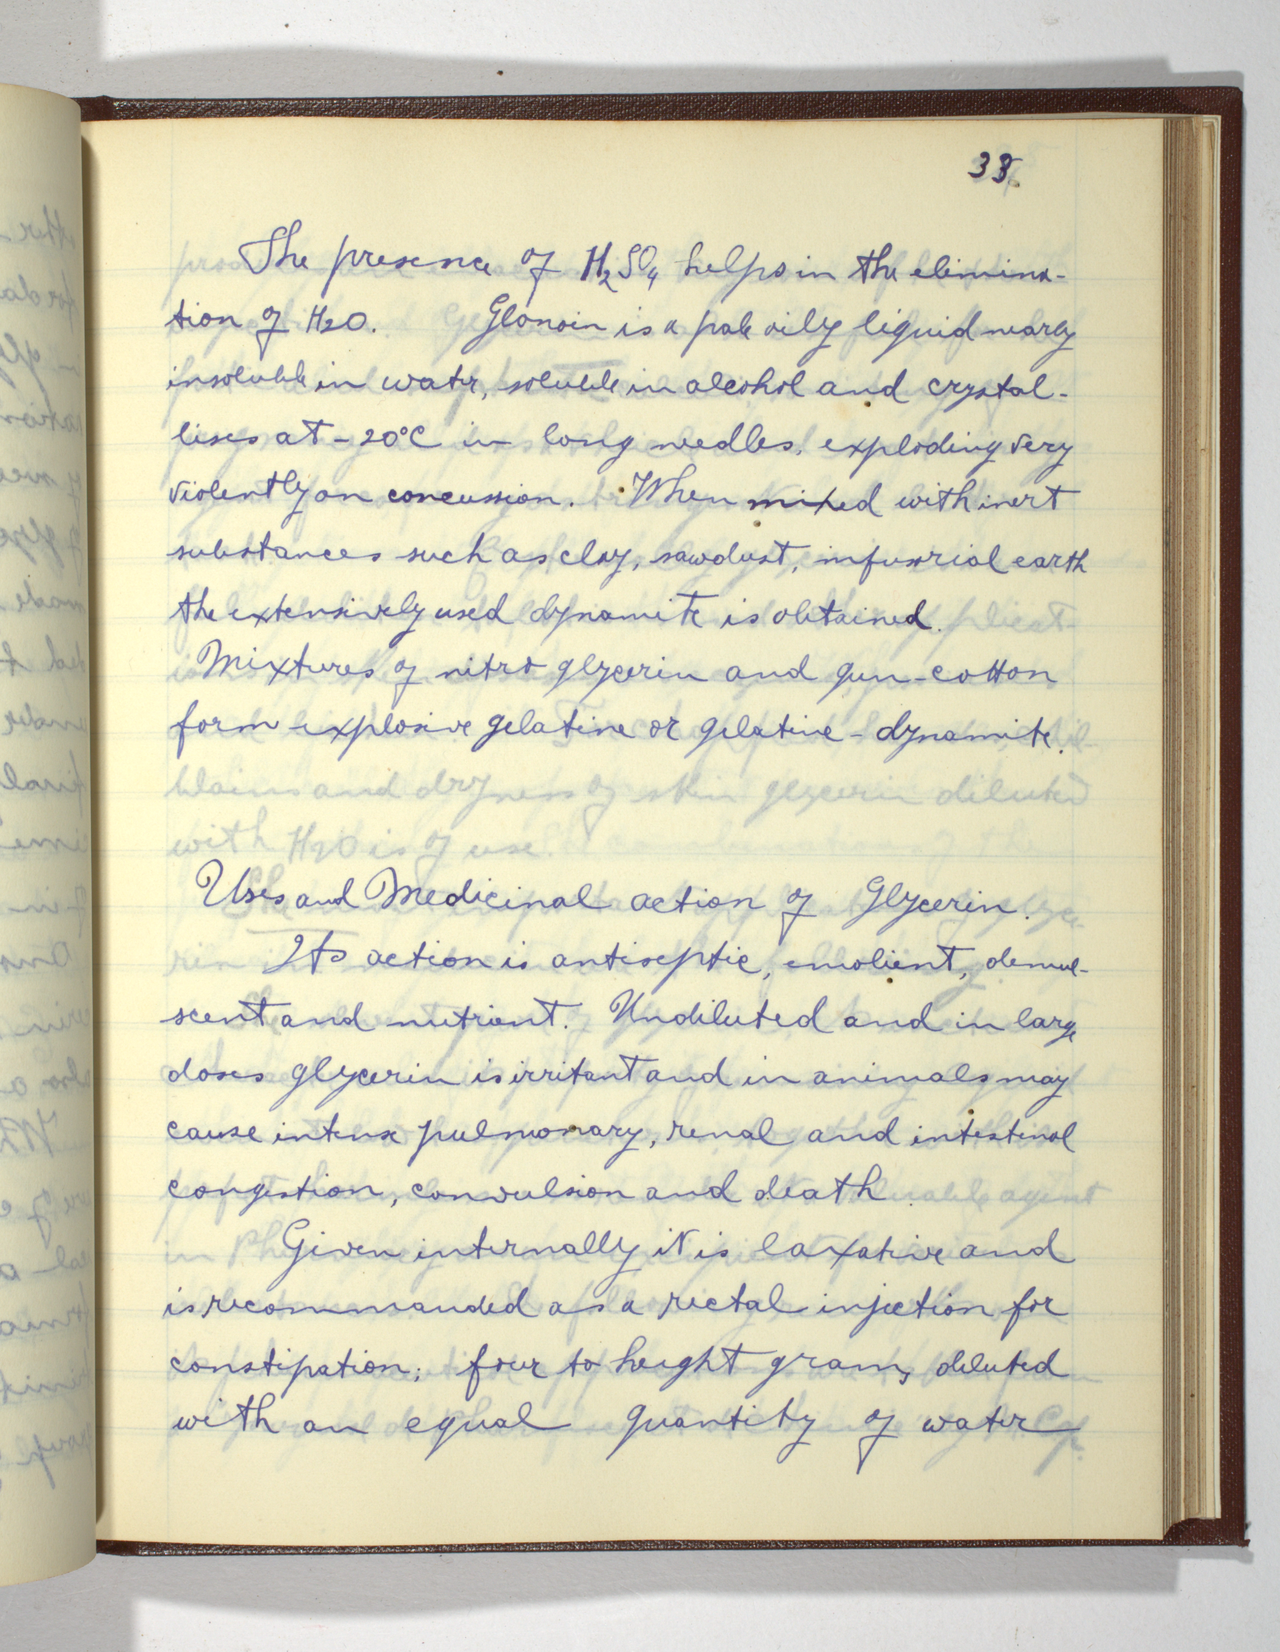 33.
The presence of H2SO4 helps in the elimina-
tion of H2O. Glonoin is a pale oily liquid nearly
insoluble in water, soluble in alcohol and crystal-
lises at -20°C in long needles, exploding very
violently on concussion. When mixed with inert
substances such as clay, sawdust, infusorial earth
the extensively used dynamite is obtained.
Mixtures of nitro glycerin and gun-cotton
form explosive gelatine or gelatine-dynamite.
Uses and Medicinal action of Glycerin.
Its action is antiseptic, emolient, demul-
scent and nutrient. Undiluted and in large
doses glycerin is irritant and in animals may
cause intense pulmonary, renal and intestinal
congestion, convulsion and death.
Given internally it is laxative and
is recommanded as a rectal injection for
constipation; four to heught grams diluted
with an equal quantity of water